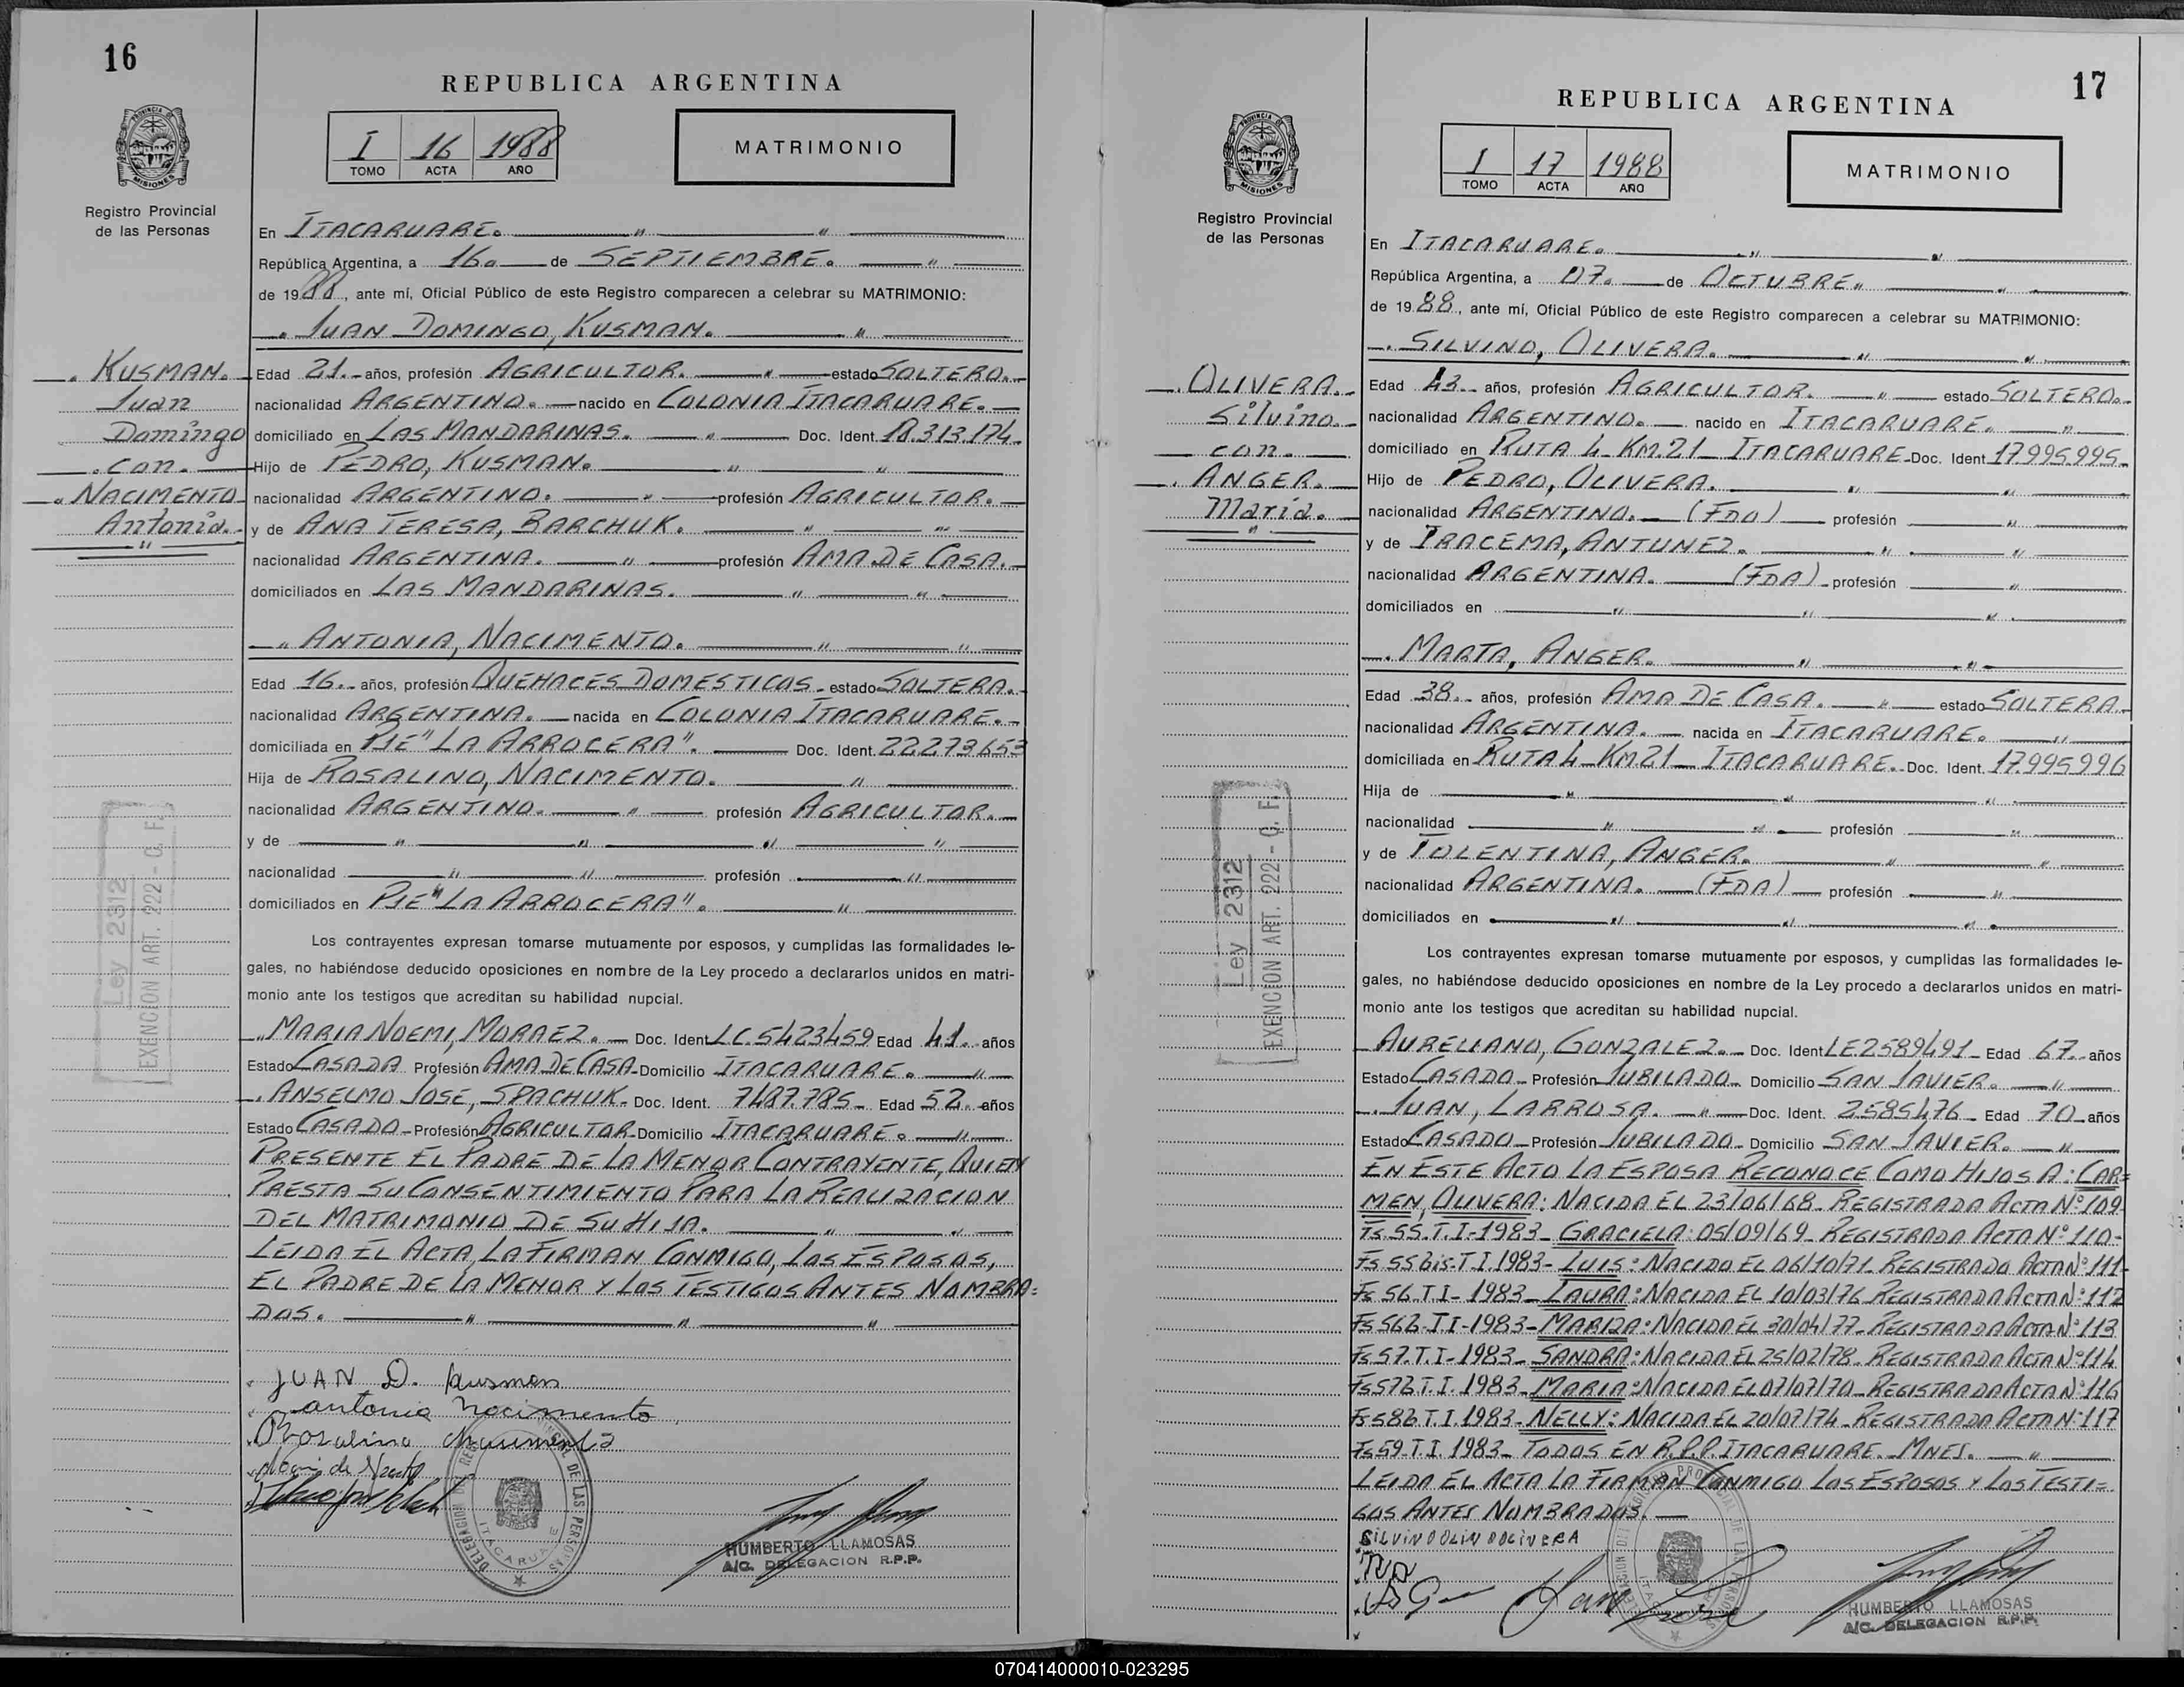 16
REPUBLICA ARGENTINA
PROVINCIA DE MISIONES
I 16 1988
TOMO ACTA AÑO
MATRIMONIO
Registro Provincial
de las Personas
En ITACARUARE.
República Argentina, a 16. de SEPTIEMBRE.
de 1988, ante mí, Oficial Público de este Registro comparecen a celebrar su MATRIMONIO:
JUAN DOMINGO, KUSMAN.
KUSMAN.
Juan
Domingo
con.
NACIMENTO
Antonia.
Edad 21. años, profesión AGRICULTOR. estado SOLTERO.
nacionalidad ARGENTINO. nacido en COLONIA ITACARUARE.
domiciliado en LAS MANDARINAS. Doc. Ident. 18.313.174.
Hijo de PEDRO, KUSMAN.
nacionalidad ARGENTINO. profesión AGRICULTOR.
y de ANA TERESA, BARCHUK.
nacionalidad ARGENTINA. profesión AMA DE CASA.
domiciliados en LAS MANDARINAS.
ANTONIA, NACIMENTO.
Edad 16. años, profesión QUEHACES DOMESTICOS. estado SOLTERA.
nacionalidad ARGENTINA. nacida en COLONIA ITACARUARE.
domiciliada en PJE "LA ARROCERA". Doc. Ident. 22273653
Hija de ROSALINO, NACIMENTO.
nacionalidad ARGENTINO. profesión AGRICULTOR.
y de
nacionalidad profesión
domiciliados en PJE "LA ARROCERA".
Ley 2312
EXENCION ART. 222 - C. F.
Los contrayentes expresan tomarse mutuamente por esposos, y cumplidas las formalidades le-
gales, no habiéndose deducido oposiciones en nombre de la Ley procedo a declararlos unidos en matri-
monio ante los testigos que acreditan su habilidad nupcial.
MARIA NOEMI, MORAEZ. Doc. Ident LC.5423459 Edad 41. años
Estado CASADA Profesión AMA DE CASA Domicilio ITACARUARE.
ANSELMO JOSE, SPACHUK. Doc. Ident. 7487.785 Edad 52. años
Estado CASADO Profesión AGRICULTOR Domicilio ITACARUARE.
PRESENTE EL PADRE DE LA MENOR CONTRAYENTE, QUIEN
PRESTA SU CONSENTIMIENTO PARA LA REALIZACION
DEL MATRIMONIO DE SU HIJA.
LEIDA EL ACTA, LA FIRMAN CONMIGO, LOS ESPOSOS,
EL PADRE DE LA MENOR Y LOS TESTIGOS ANTES NOMBRA=
DOS.
JUAN D. Kusman
antonia nacimento
Rosalino
HUMBERTO LLAMOSAS
A/C. DELEGACION R.P.P.
17
REPUBLICA ARGENTINA
PROVINCIA DE MISIONES
I 17 1988
TOMO ACTA AÑO
MATRIMONIO
Registro Provincial
de las Personas
En ITACARUARE.
República Argentina, a 07. de OCTUBRE.
de 1988, ante mí, Oficial Público de este Registro comparecen a celebrar su MATRIMONIO:
SILVINO, OLIVERA.
OLIVERA.
Silvino.
con.
ANGER.
Marta.
Edad 43. años, profesión AGRICULTOR. estado SOLTERO.
nacionalidad ARGENTINO. nacido en ITACARUARE.
domiciliado en RUTA 4 KM.21 ITACARUARE Doc. Ident 17.995.995.
Hijo de PEDRO, OLIVERA.
nacionalidad ARGENTINO. (FDO) profesión
y de IRACEMA, ANTUNEZ.
nacionalidad ARGENTINA. (FDA) profesión
domiciliados en
MARTA, ANGER.
Edad 38. años, profesión AMA DE CASA. estado SOLTERA
nacionalidad ARGENTINA. nacida en ITACARUARE.
domiciliada en RUTA 4 KM21 ITACARUARE. Doc. Ident. 17.995996
Hija de
nacionalidad profesión
y de TOLENTINA, ANGER.
nacionalidad ARGENTINA. (FDA) profesión
domiciliados en
Ley 2312
EXENCION ART. 222 - C. F.
Los contrayentes expresan tomarse mutuamente por esposos, y cumplidas las formalidades le-
gales, no habiéndose deducido oposiciones en nombre de la Ley procedo a declararlos unidos en matri-
monio ante los testigos que acreditan su habilidad nupcial.
AURELIANO, GONZALEZ. Doc. Ident LE2589491 Edad 67. años
Estado CASADO Profesión JUBILADO Domicilio SAN JAVIER.
JUAN, LARROSA. Doc. Ident. 2585476 Edad 70 años
Estado CASADO Profesión JUBILADO Domicilio SAN JAVIER.
EN ESTE ACTO LA ESPOSA RECONOCE COMO HIJOS A: CAR=
MEN, OLIVERA: NACIDA EL 23/06/68 REGISTRADA ACTA Nº 109
Fs.55.T.I-1983 GRACIELA: 05/09/69 REGISTRADA ACTA Nº 110-
Fs 55bis-T.I.1983- LUIS: NACIDO EL 06/10/71 REGISTRADO ACTA Nº 111-
Fs 56 T I- 1983 LAURA: NACIDA EL 10/03/76 REGISTRADA ACTA Nº 112
Fs 56b T I-1983- MARIZA: NACIDA EL 30/04/77 REGISTRADA ACTA Nº 113
Fs 57.T.I-1983 SANDRA: NACIDA EL 25/02/78 REGISTRADA ACTA Nº 114
Fs57b T.I. 1983 MARIA: NACIDA EL 07/07/70 REGISTRADA ACTA Nº 116
Fs58b T.I.1983- NELLY: NACIDA EL 20/07/74 REGISTRADA ACTA Nº 117
Fs59.T.I.1983 TODOS EN R.P.P. ITACARUARE. MNES.
LEIDA EL ACTA LA FIRMAN CONMIGO LOS ESPOSOS Y LOS TESTI=
GOS ANTES NOMBRADOS.
HUMBERTO LLAMOSAS
A/C. DELEGACION R.P.P.
070414000010-023295